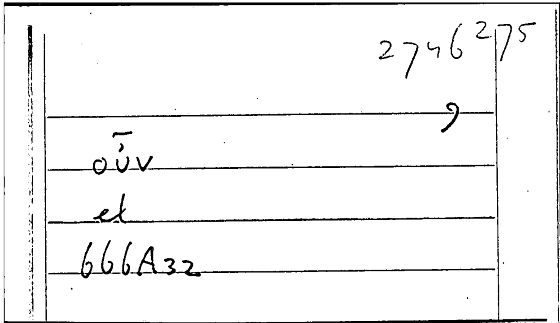 2746275
,
οὖν
et
666A32